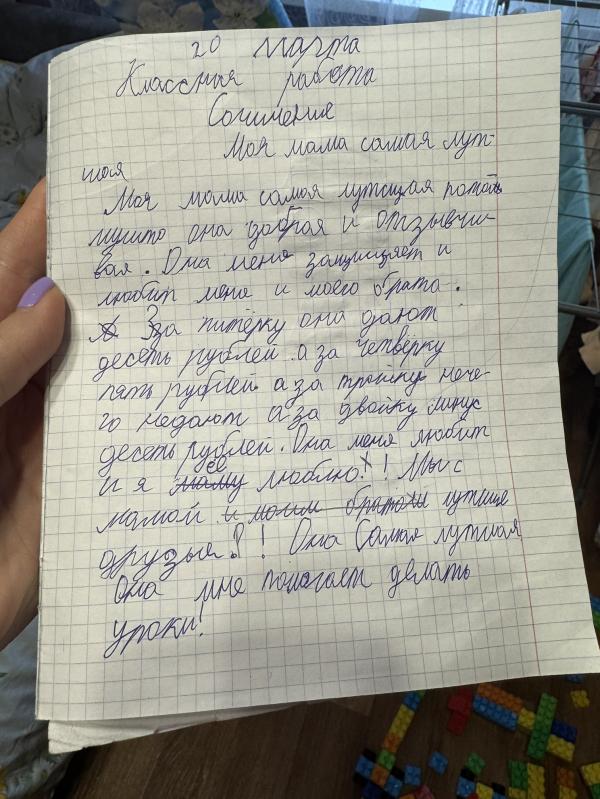 20 марта
Классная работа
Сочинение
Моя мама самая лут-
шая
Моя мама самая лутшая потому
мушто она добрая и отзывчи-
вая. Она меня защищяет и
любит меня и моего брата.
За питёрку она дают
десеть рублей а за четвёрку
пять рублей а за тройку ниче-
го недают а за двойку минус
десеть рублей. Она меня любит
и я маму её люблю! Мы с
мамой и моим братом лутшие
друзья! Она самая лутшая
Она мне помогает делать
уроки!